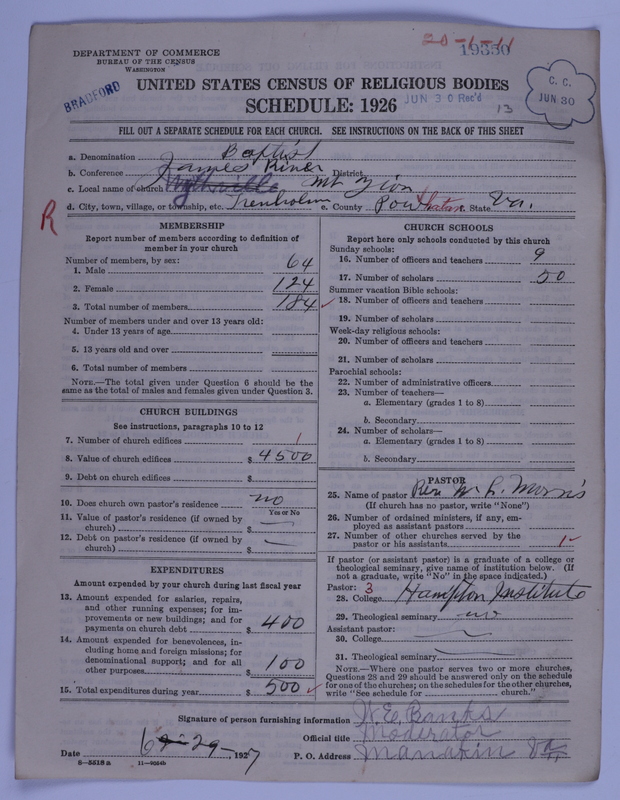 20-1-11
19350
DEPARTMENT OF COMMERCE
BUREAU OF THE CENSUS
WASHINGTON
BRADFORD
UNITED STATES CENSUS OF RELIGIOUS BODIES
SCHEDULE: 1926
JUN 30 Rec'd
13
C. C.
JUN 30
FILL OUT A SEPARATE SCHEDULE FOR EACH CHURCH. SEE INSTRUCTIONS ON THE BACK OF THIS SHEET
a. Denomination Baptist
b. Conference James River District
c. Local name of church Mt Zion
d. City, town, village, or township, etc. Trenholm e. County Powhatan f. State Va.
R
MEMBERSHIP
Report number of members according to definition of
member in your church
Number of members, by sex:
1. Male 64
2. Female 124
3. Total number of members 184
Number of members under and over 13 years old:
4. Under 13 years of age
5. 13 years old and over
6. Total number of members
NOTE.—The total given under Question 6 should be the
same as the total of males and females given under Question 3.
CHURCH BUILDINGS
See instructions, paragraphs 10 to 12
7. Number of church edifices 1
8. Value of church edifices $ 4500
9. Debt on church edifices $
10. Does church own pastor's residence no
Yes or No
11. Value of pastor's residence (if owned by
church) $
12. Debt on pastor's residence (if owned by
church) $
EXPENDITURES
Amount expended by your church during last fiscal year
13. Amount expended for salaries, repairs,
and other running expenses; for im-
provements or new buildings; and for
payments on church debt $ 400
14. Amount expended for benevolences, in-
cluding home and foreign missions; for
denominational support; and for all
other purposes $ 100
15. Total expenditures during year $ 500
CHURCH SCHOOLS
Report here only schools conducted by this church
Sunday schools:
16. Number of officers and teachers 9
17. Number of scholars 50
Summer vacation Bible schools:
18. Number of officers and teachers
19. Number of scholars
Week-day religious schools:
20. Number of officers and teachers
21. Number of scholars
Parochial schools:
22. Number of administrative officers
23. Number of teachers—
a. Elementary (grades 1 to 8)
b. Secondary
24. Number of scholars—
a. Elementary (grades 1 to 8)
b. Secondary
PASTOR
25. Name of pastor Rev. W. L. Morris
(If church has no pastor, write "None")
26. Number of ordained ministers, if any, em-
ployed as assistant pastors
27. Number of other churches served by the
pastor or his assistants 1
If pastor (or assistant pastor) is a graduate of a college or
theological seminary, give name of institution below. (If
not a graduate, write "No" in the space indicated.)
Pastor: 3
28. College Hampton Institute
29. Theological seminary no
Assistant pastor:
30. College
31. Theological seminary
NOTE.—Where one pastor serves two or more churches,
Questions 28 and 29 should be answered only on the schedule
for one of the churches; on the schedules for the other churches,
write "See schedule for church."
Signature of person furnishing information W. E. Banks
Official title Moderator
Date 6-29-, 1927
P. O. Address Manakin Va
8—5518 a 11—9564b